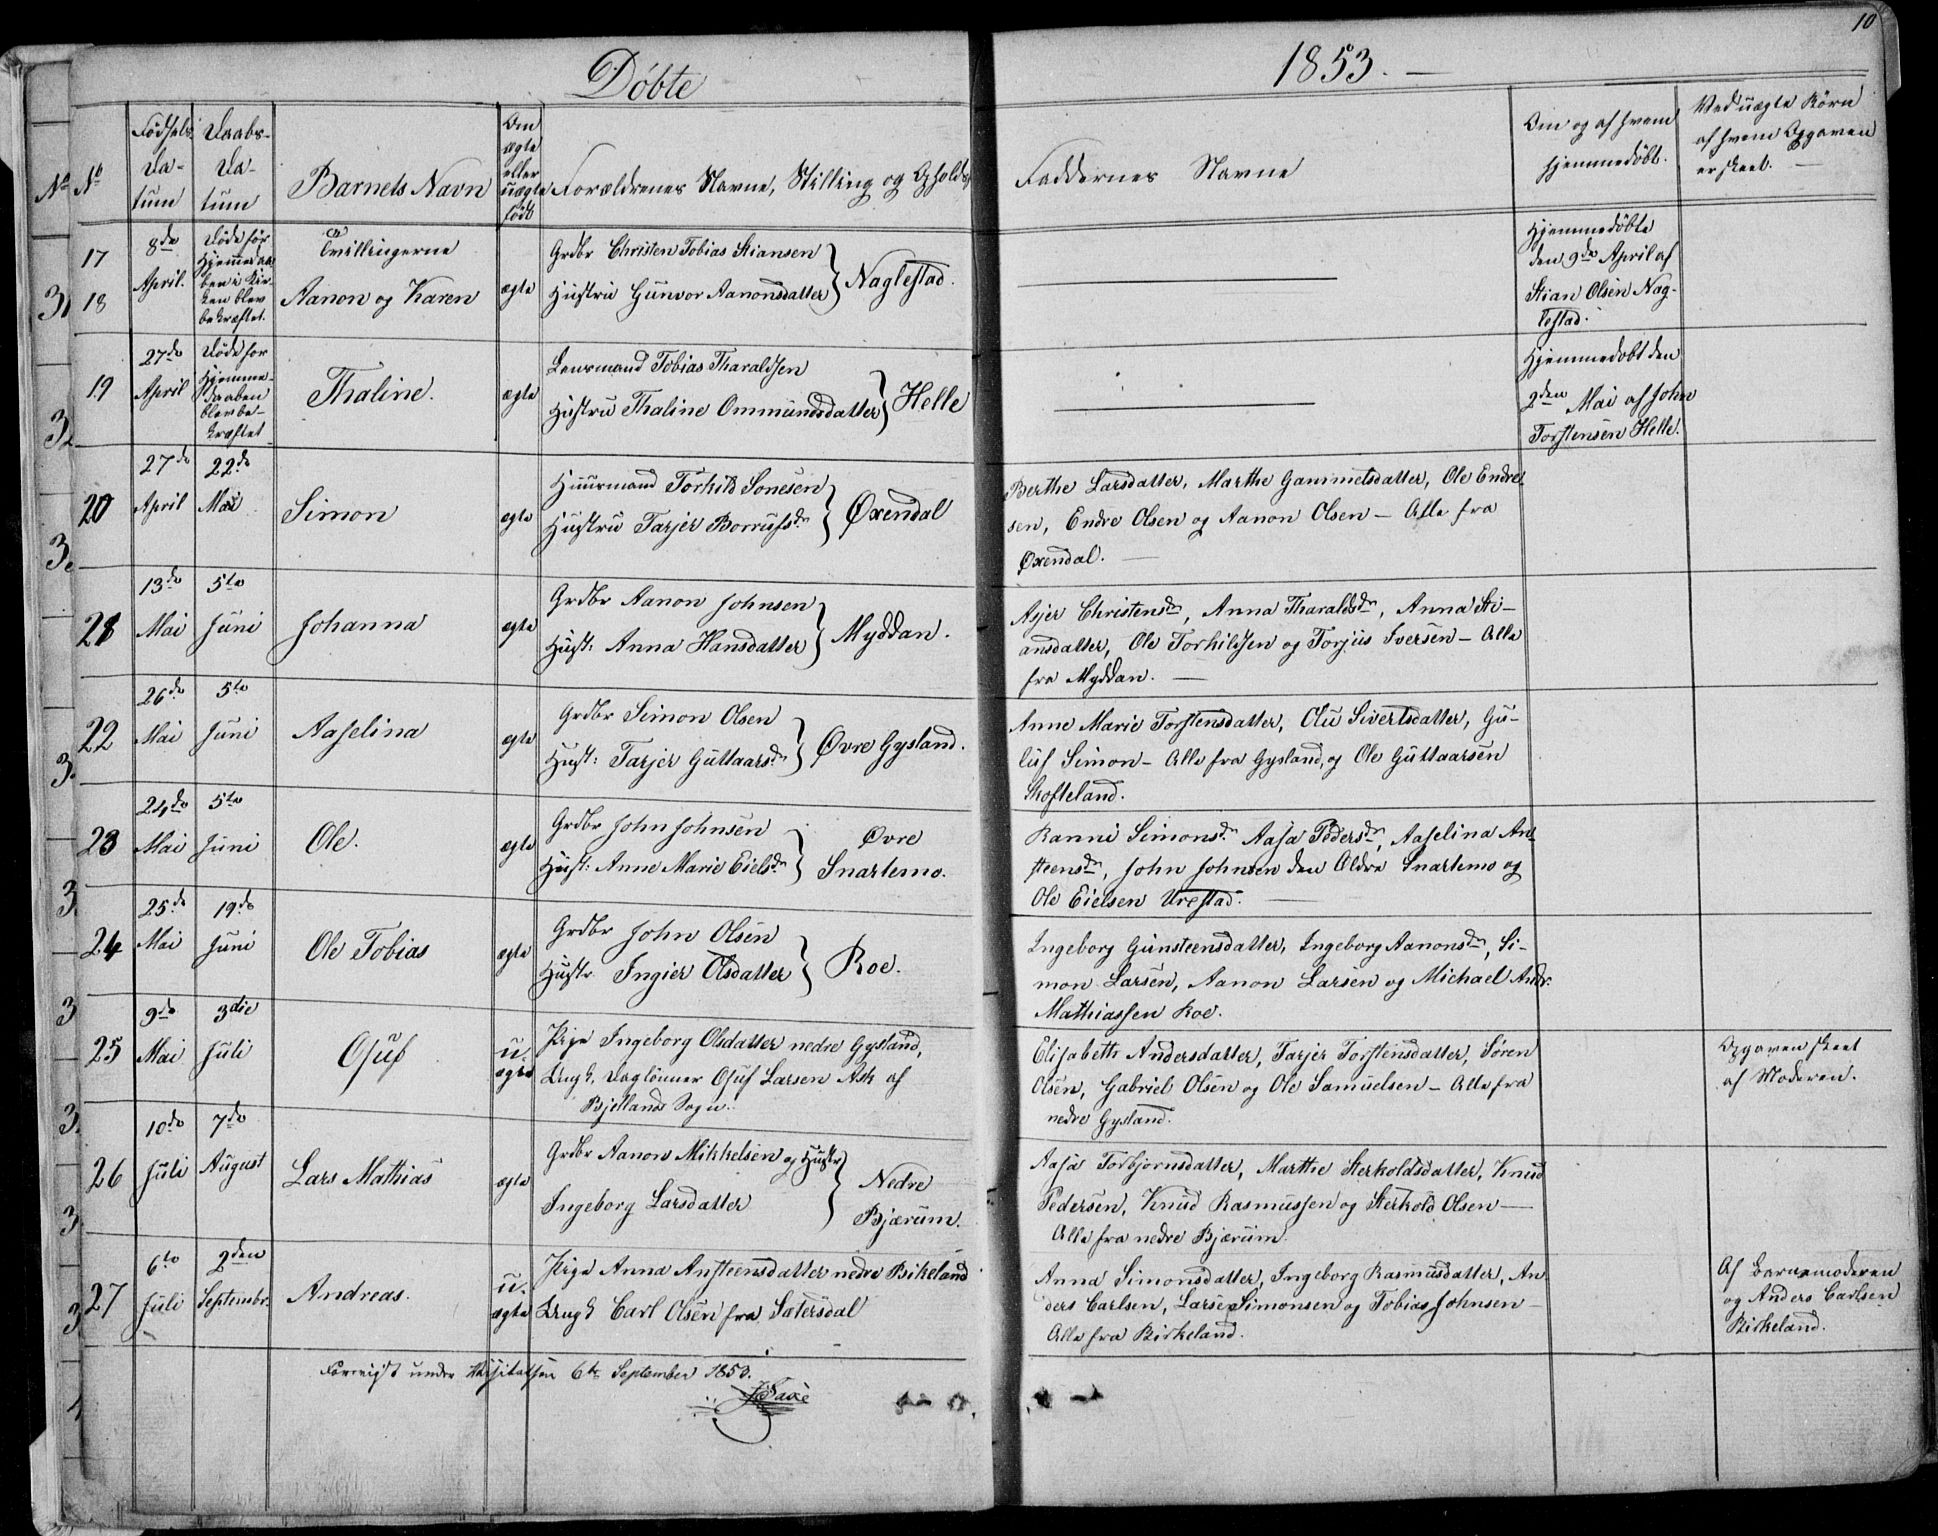 10
Døbte
1853. —
No
No
Fødsels
Da-
tum
Daabs-
Da-
tum
Barnets Navn
Om
ægte
eller
uægte
født
Forældrenes Navne, Stilling og Opholds
Faddernes Navne
Om og af hvem
hjemmedøbt.
Ved uægte Børn
af hvem Opgaven
er skeet. —
17
18
8de
April.
Døde før
Hjemmedaa-
ben i Kir-
ken blev
bekræftet.
Tvillingerne
Aanon og Karen
ægte
Grdbr Christen Tobias Stiansen
Hustru Gunvor Aanonsdatter
Naglestad.
Hjemmedøbte
den 9de April af
Stian Olsen Nag-
lestad.
19
27de
April
Døde før
Hjemme-
daaben
blev be-
kræftet
Thaline.
ægte
Lensmand Tobias Tharaldsen
Hustru Thaline Ommundsdatter
Helle
Hjemmedøbt den
2den Mai af John
Torstensen Helle.
20
27de
April
22de
Mai
Simon
ægte
Huusmand Torkild Sonesen
Hustru Tarjer Borrufsdr
Øxendal
Berthe Larsdatter, Marthe Gammelsdatter, Ole Endre-
sen, Endre Olsen og Aanon Olsen — Alle fra
Øxendal. —
21
13de
Mai
5te
Juni
Johanna
ægte
Grdbr Aanon Johnsen
Hust: Anna Hansdatter
Myddan.
Asjer Christensdr, Anna Tharaldsdr, Anna Sti-
ansdatter, Ole Torkildsen og Torjus Iversen — Alle
fra Myddan. —
22
26de
Mai
5te
Juni
Aaselina
ægte
Grdbr Simon Olsen
Hust: Tarjer Guttaarsdr
Øvre Gysland.
Anne Marie Torstensdatter, Olu Sivertsdatter, Gu-
luf Simon — Alle fra Gysland, og Ole Guttaarsen
Skofteland.
23
24de
Mai
5te
Juni
Ole.
ægte
Grdbr John Johnsen
Hust: Anne Marie Eielsdr
Øvre
Snartemo.
Ranni Simonsdr Aasa Pedersdr, Aaselina An-
steensdr, John Johnsen den Ældre Snartemo og
Ole Eielsen Urestad. —
24
25de
Mai
19de
Juni
Ole Tobias
ægte
Grdbr John Olsen
Hustr. Ingier Olsdatter
Roe.
Ingeborg Gunsteensdatter, Ingeborg Aanonsdr, Si-
mon Larsen, Aanon Larsen og Michael Andr.
Mathiassen Roe.
25
9de
Mai
3die
Juli
Osuf
u-
ægte
Pige Ingeborg Olsdatter nedre Gysland,
Ungk. Daglønner Osuf Larsen Ask af
Bjellands Sogn.
Elisabeth Andersdatter, Tarjer Torstensdatter, Søren
Olsen, Gabriel Olsen og Ole Samuelsen — Alle fra
nedre Gysland.
Opgaven skeet
af Moderen.
26
10de
Juli
7de
August
Lars Mathias
ægte
Grdbr Aanon Mikkelsen og Hustr
Ingeborg Larsdatter
Nedre
Bjærum.
Aasa Torbjornsdatter, Marthe Sterkoldsdatter, Knud
Pedersen, Knud Rasmussen og Sterkold Olsen —
Alle fra nedre Bjærum.
27
6te
Juli
2den
Septembr.
Andreas.
u-
ægte
Pige Anna Ansteensdatter nedre Birkeland
Ungk Carl Olsen fra Sætersdal
Anna Simonsdatter, Ingeborg Rasmusdatter, An-
ders Carlsen, Larsen Simonsen og Tobias Johnsen —
Alle fra Birkeland.
Af Barnemoderen
og Anders Carlsen
Birkeland.
Foreviist under Visitatsen 6te September 1853.